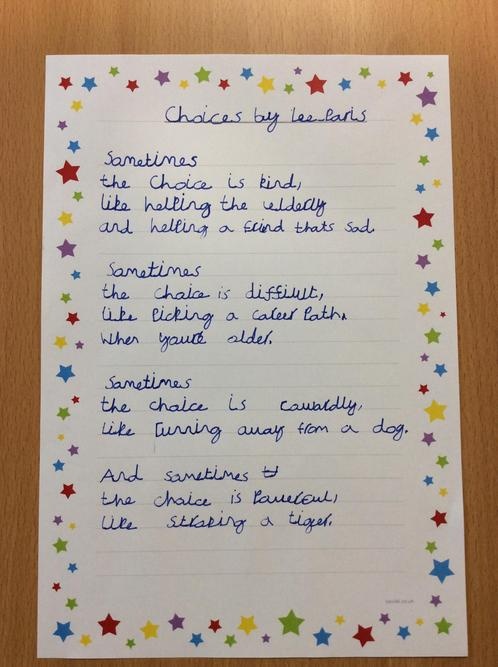 Choices by Lee-Paris
Sometimes
the Choice is kind,
like helling the elderly
and helling a frind thats sad.
Sometimes
the choice is difficult,
like Picking a career Path.
When youre older.
Sometimes
the choice is cowardly,
like running away from a dog.
And sometimes
the choice is Powerful,
like stroking a tiger.